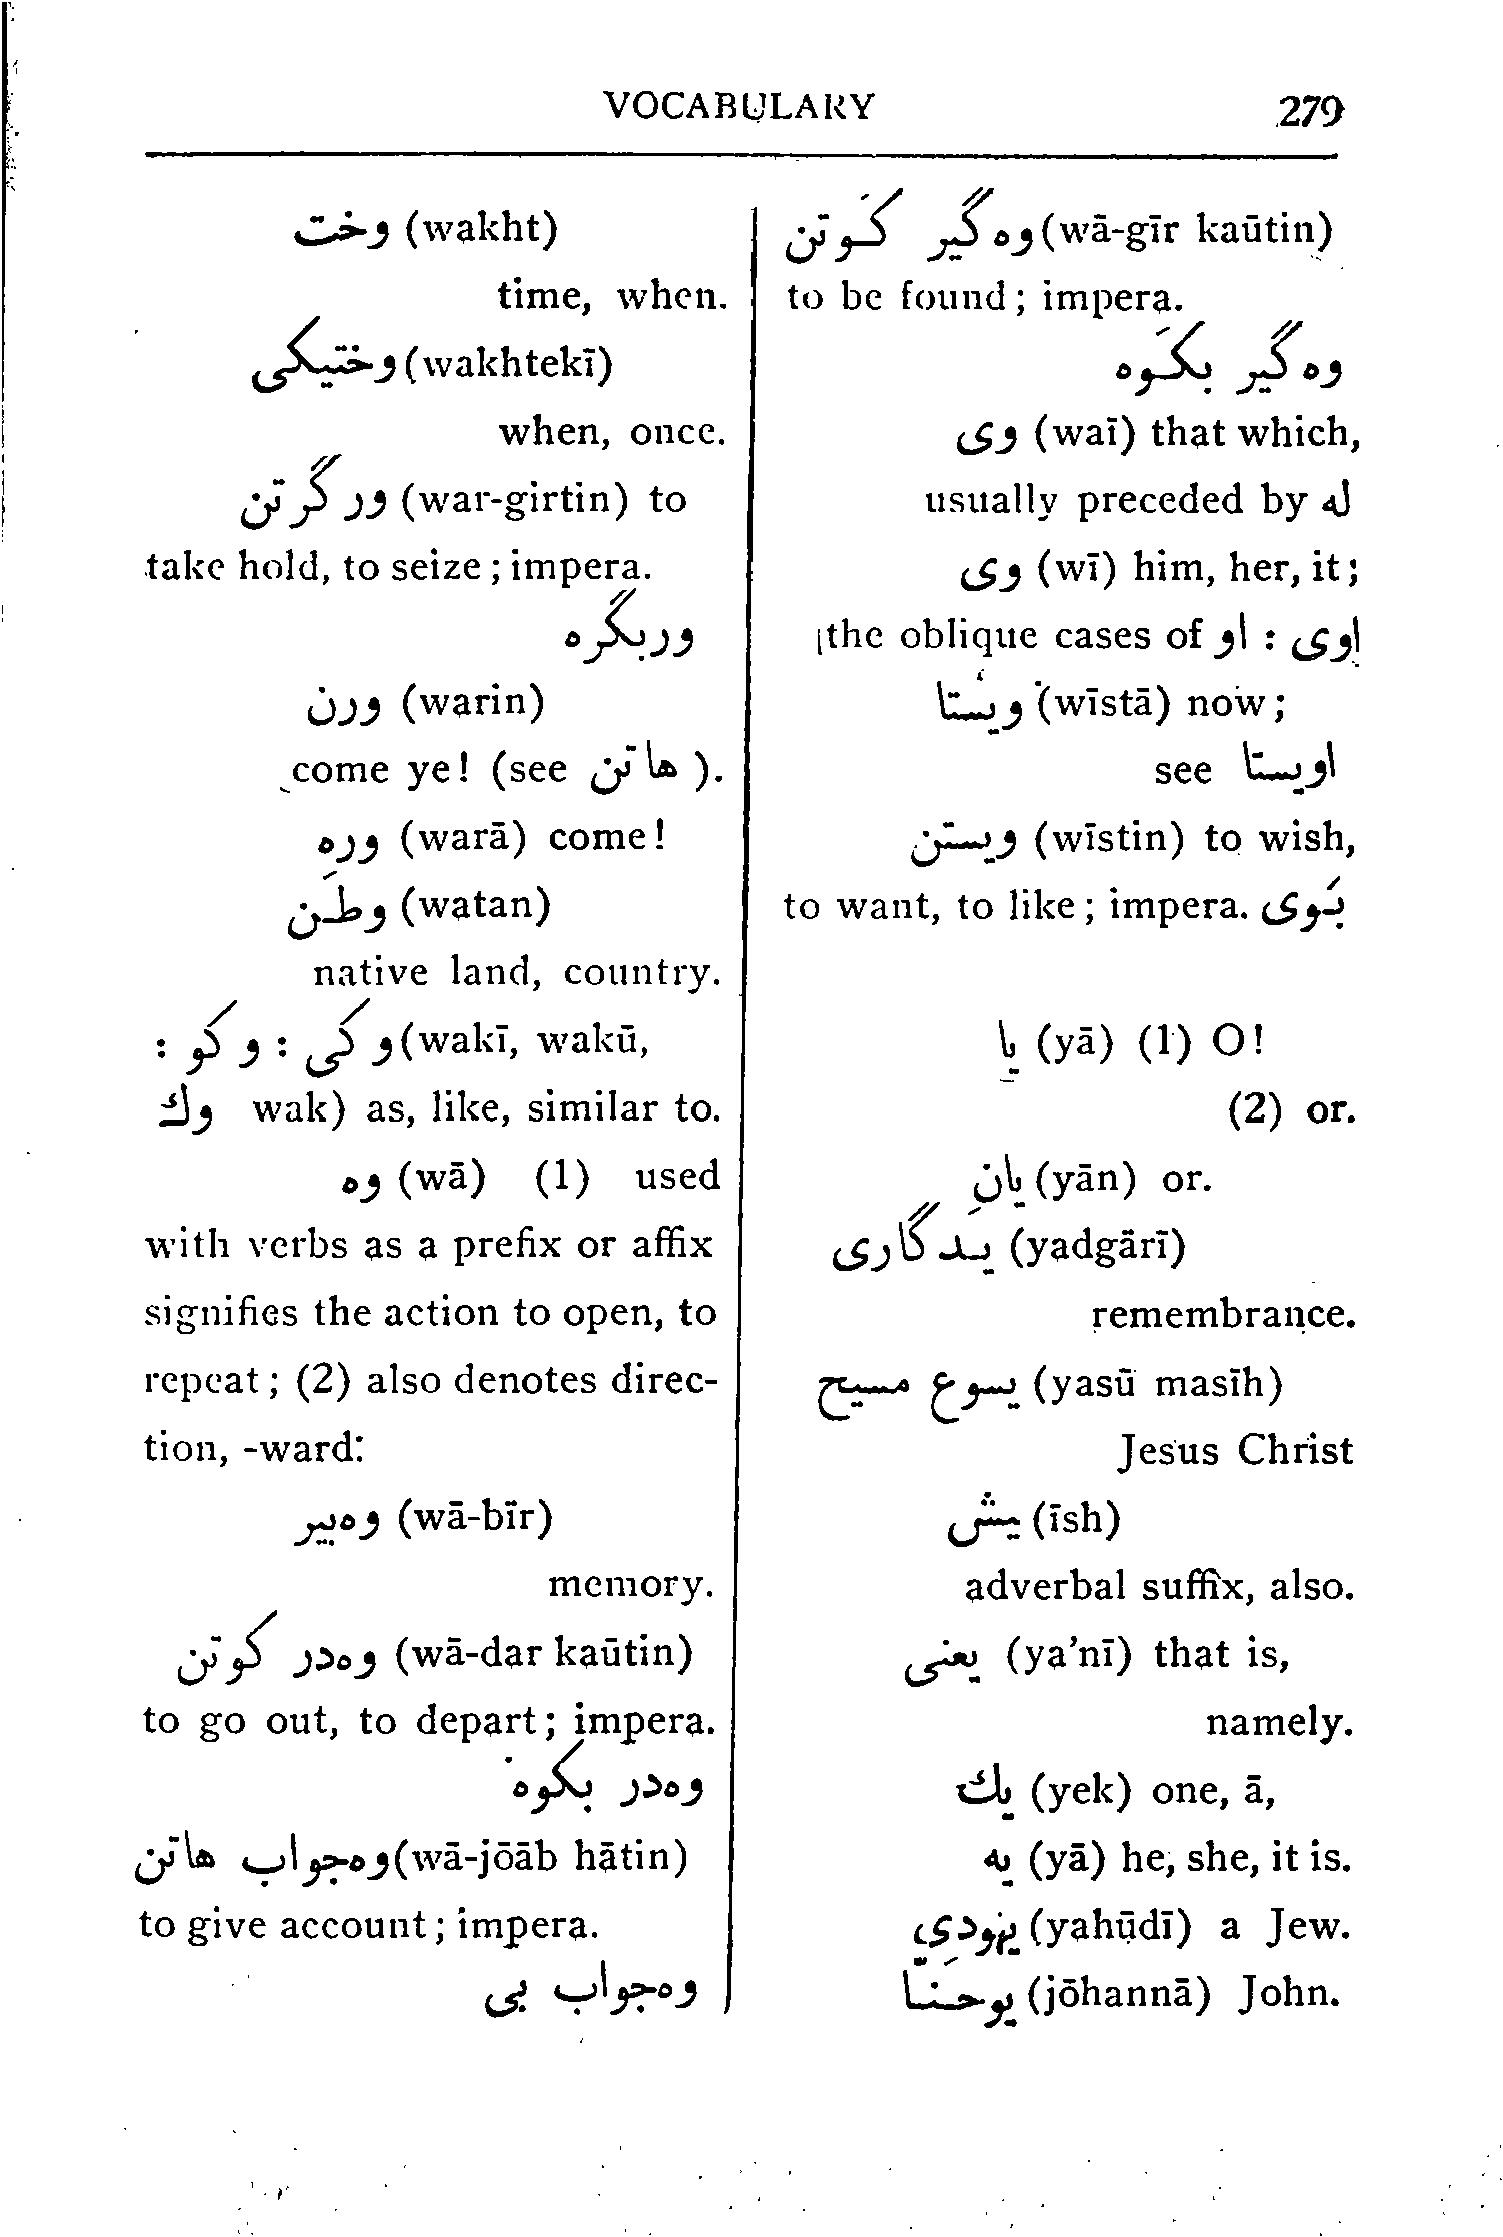 VOCABULARY 279
وخت (wakht)
time, when.
وختیکی (wakhtekī)
when, once.
ور گرتن (war-girtin) to
take hold, to seize; impera.
وربگره
ورن (warin)
come ye! (see هاتن ).
وره (warā) come!
وطن (watan)
native land, country.
وکی : وکو : (wakī, wakū,
وك wak) as, like, similar to.
وه (wā) (1) used
with verbs as a prefix or affix
signifies the action to open, to
repeat; (2) also denotes direc-
tion, -ward:
وه‌بیر (wā-bīr)
memory.
وه‌در کوتن (wā-dar kaūtin)
to go out, to depart; impera.
وه‌در بکوه
وه‌جواب هاتن (wā-jōāb hātin)
to give account; impera.
وه‌جواب بی
وه گیر کَوتن (wā-gīr kaūtin)
to be found; impera.
وه گیر بکَوه
وی (waī) that which,
usually preceded by له
وی (wī) him, her, it;
the oblique cases of او : اِوی
ویستا (wīstā) now;
see اویستا
ویستن (wīstin) to wish,
to want, to like; impera. بَوی
یا (yā) (1) O!
(2) or.
یانِ (yān) or.
یَدگاری (yadgārī)
remembrance.
یسوع مسیح (yasū masīh)
Jesus Christ
یش (īsh)
adverbal suffix, also.
یعنی (ya’nī) that is,
namely.
یك (yek) one, ā,
یه (yā) he, she, it is.
یهودِي (yahūdī) a Jew.
یوحنا (jōhannā) John.